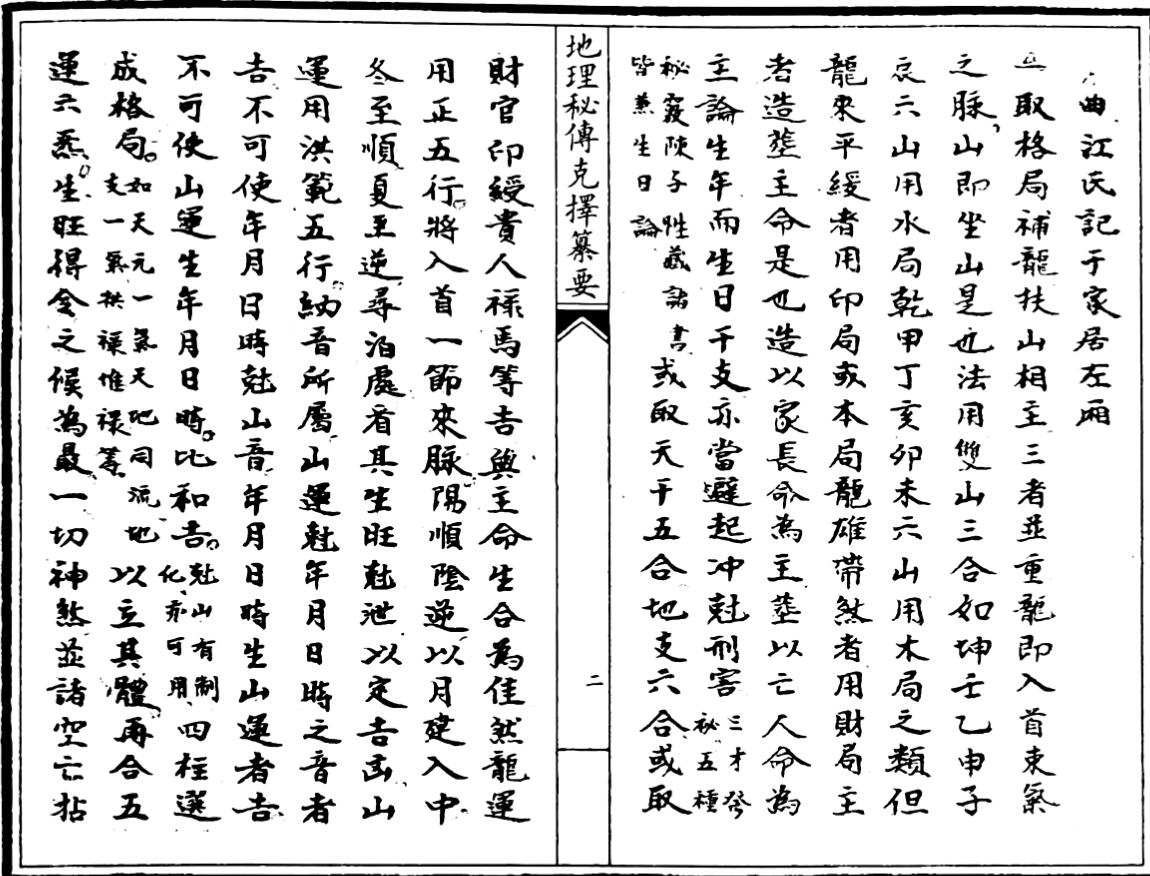 曲江氏記于家居左廂
取格局補龍扶山相主三者並重龍即入首束氣
之脉山即坐山是也法用雙山三合如坤壬乙申子
辰六山用水局乾甲丁亥卯未六山用木局之類但
龍來平緩者用印局或本局龍雄帶煞者用財局主
者造塟主命是也造以家長命為主塟以亡人命為
主論生年而生日干支亦當避起冲尅刑害三才發秘五種
秘竅陳子性藏諸書皆兼生日論或取天干五合地支六合或取
地理秘傳克擇纂要
二
財官印綬貴人祿馬等吉與主命生合為佳然龍運
用正五行。將入首一節來脉陽順陰逆以月建入中
冬至順夏至逆尋泊處看其生旺尅泄以定吉凶山
運用洪範五行。納音所屬山運尅年月日時之音者
吉不可使年月日時尅山音年月日時生山運者吉
不可使山運生年月日時。比和吉。尅山有制化亦可用四柱選
成格局。如天元一氣天地同流地支一氣拱祿惟祿等以立其體再合五
運六炁。生旺得令之候為最一切神煞並諸空亡拈